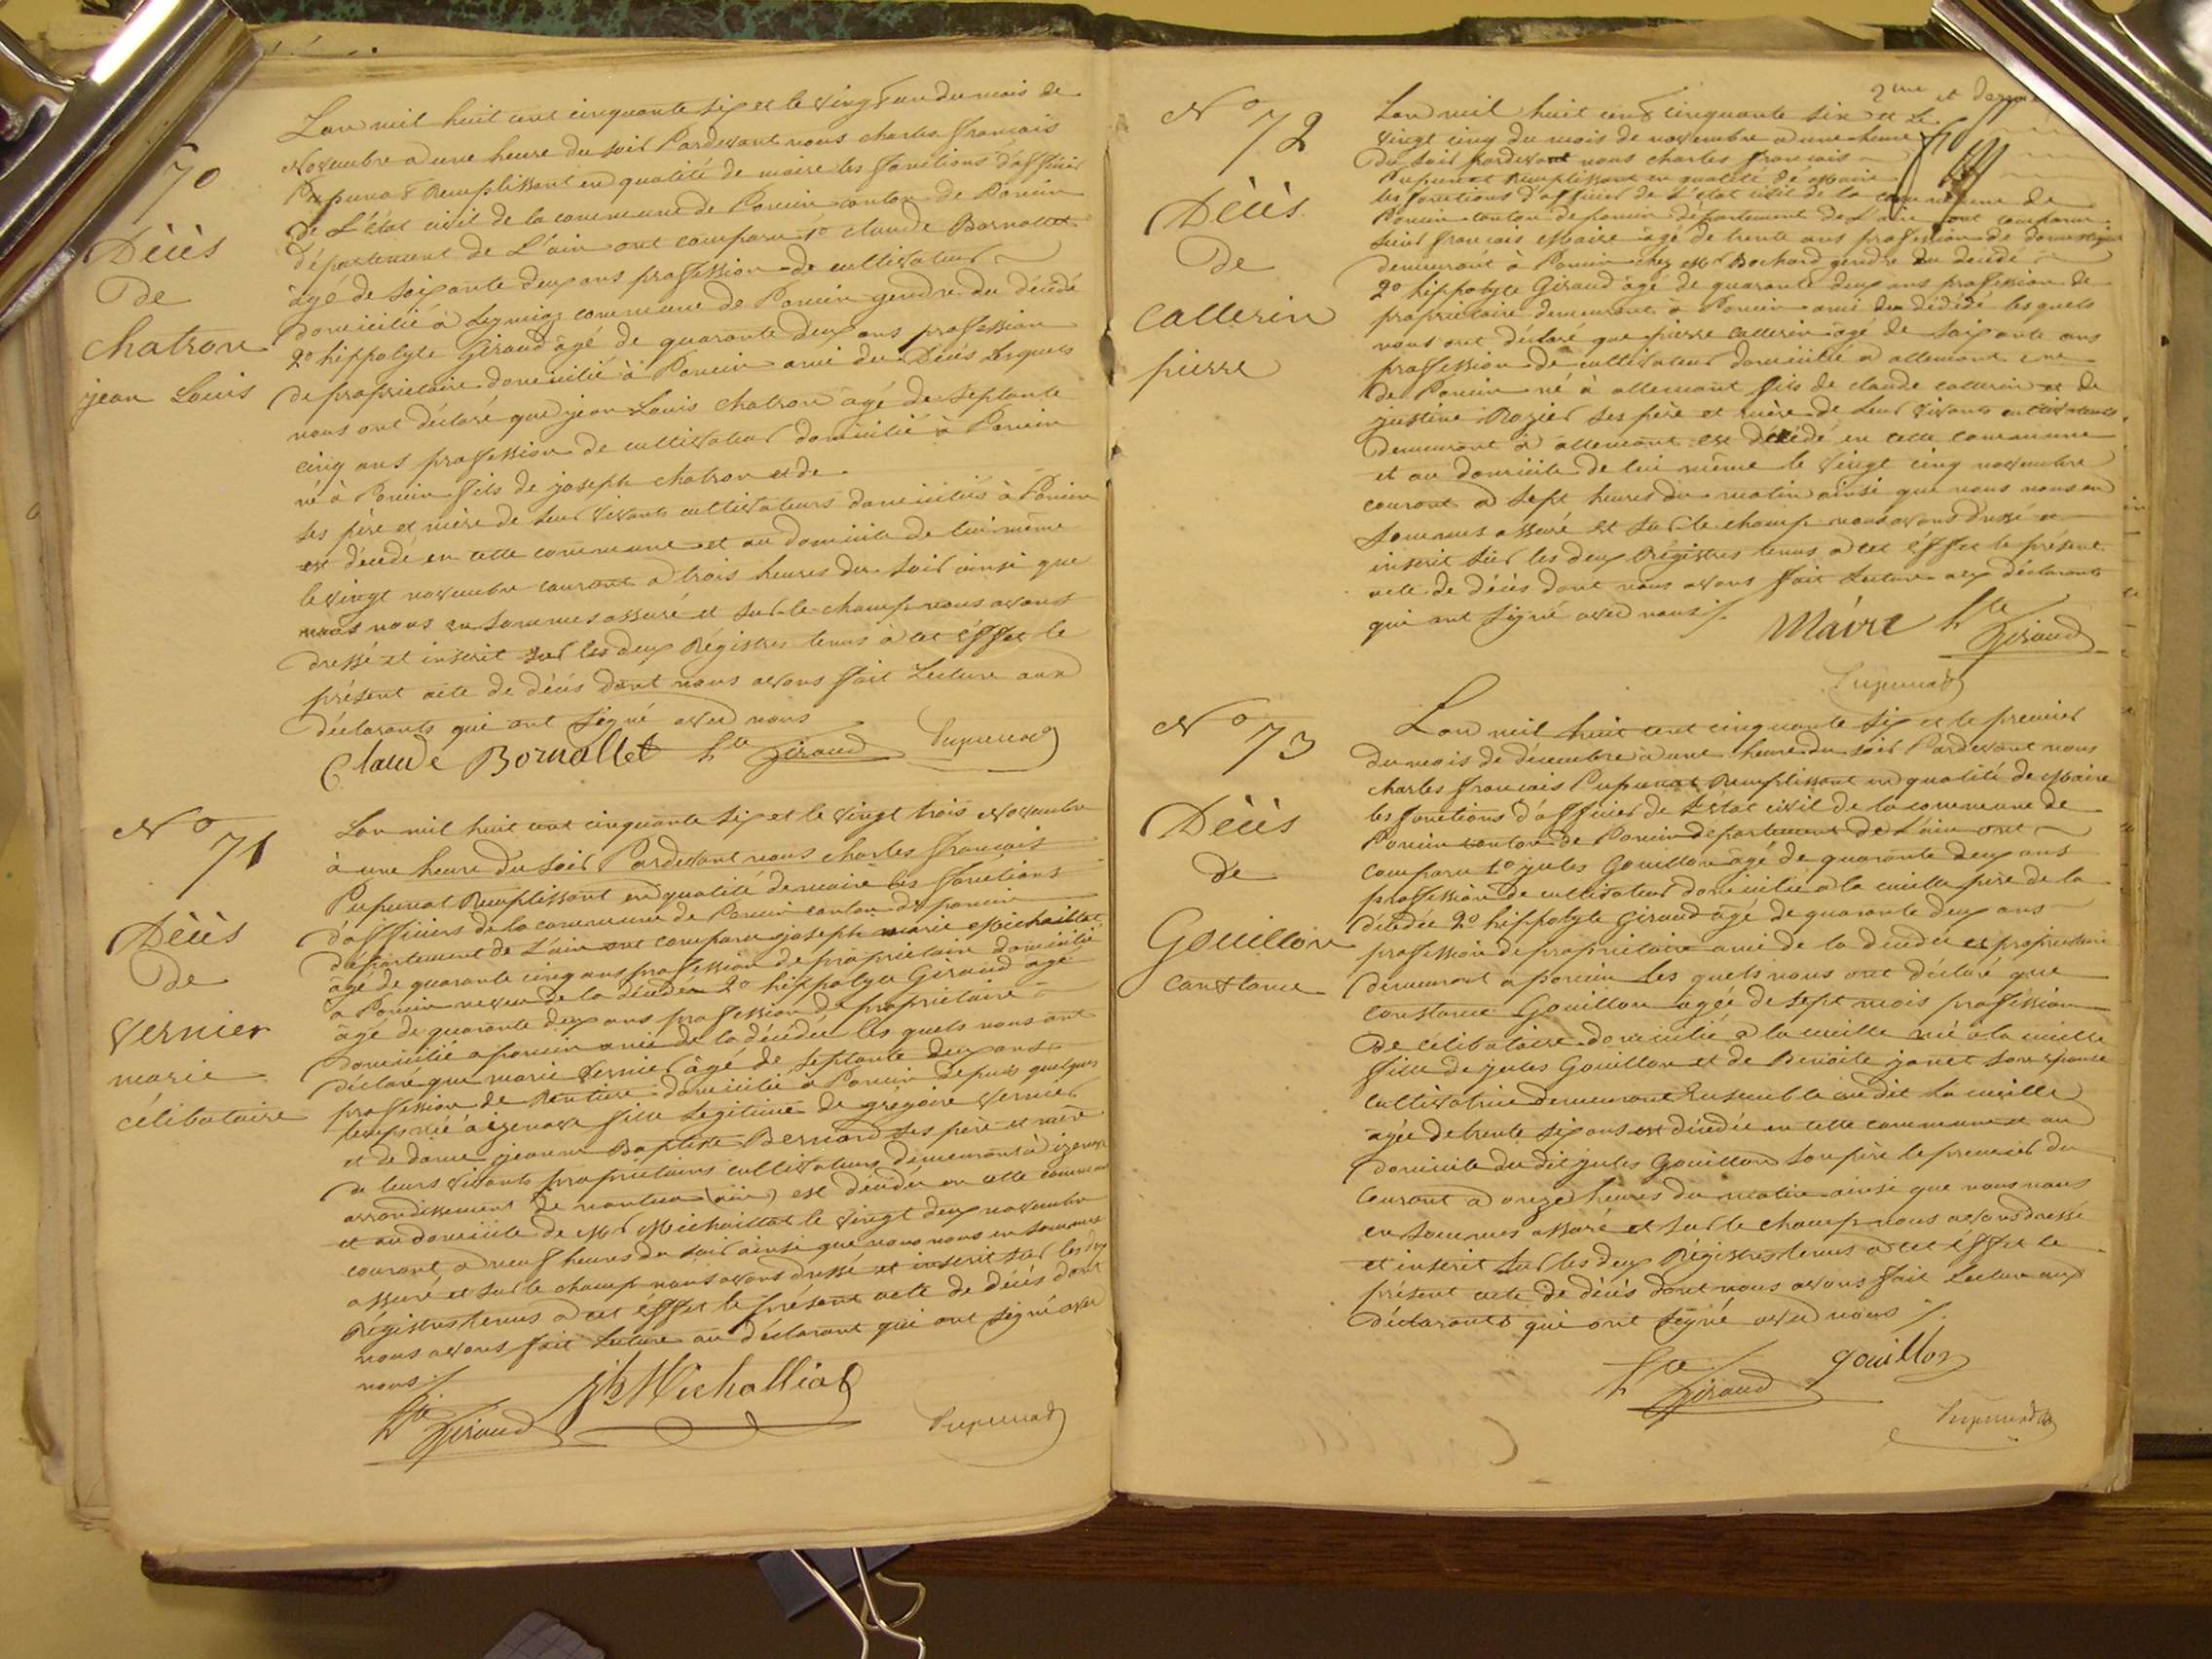 70
Décès
De
Chatron
jean Louis
L'an mil huit cent cinquante six et le vingt un du mois de
Novembre a une heure du soir Pardevant nous charles francois
Pupunat Remplissant en qualité de maire les fonctions d'officier
de L'état civil de la commune de Poncin canton de Poncin
département de L'ain ont comparu 1o claude Bornallet
âgé de soixante deux ans profession de cultivateur
domicilié à Leymiaz commune de Poncin gendre du décédé
2o hippolyte Giraud âgé de quarante deux ans profession
de proprietaire domicilié à Poncin ami du Décès Lesquels
nous ont déclaré que jean Louis chatron âgé de septante
cinq ans profession de cultivateur domicilié à Poncin
né à Poncin fils de joseph chatron et de
ses père et mère de leur vivants cultivateurs domiciliés à Poncin
est décédé en cette commune et au domicile de lui même
le vingt novembre courant a trois heures du soir ainsi que
nous nous en sommes assuré et sur le champ nous avons
dressé et inscrit sur les deux Régistres tenus à cet éffet le
présent acte de décès dont nous avons fait Lecture aux
déclarants qui ont signé avec nous
Claude Bornallet hte Giraud Pupunat
No 71
Décès
De
Vernier
marie
célibataire
L'an mil huit cent cinquante six et le vingt trois Novembre
à une heure du soir Pardevant nous charles francois
Pupunat Remplissant en qualité de maire les fonctions
d'officiers de la commune de Poncin canton de poncin
département de L'ain ont comparu joseph marie Michaillat
âgé de quarante cinq ans profession de proprietaire domicilié
a Poncin neveu de la décédée 2o hippolyte Giraud agé
âgé de quarante deux ans profession de proprietaire
domicilié a poncin ami de la décédée les quels nous ont
déclaré que marie vernier âgé de septante deux ans
profession de Rentière domicilié à Poncin depuis quelques
temps née à izenave fille Legitime de grégoire vernier
et de dame jeanne Baptiste Bernard ses père et mère
de leurs vivants propriétaires cultivateurs demeurant à d'izenave
arrondissement de nantua (ain) est décédée en cette commune
et au domicile de Mr Michaillat le vingt deux novembre
courant a neuf heures du soir ainsi que nous nous en sommes
assuré et sur le champ nous avons dressé et inscrit sur les deux
Régistres tenus a cet éffet le présent acte de décès dont
nous avons fait Lecture au déclarant qui ont signé avec
nous
hte Giraud jh Michalliat Pupunat
2me et dernier
No 72
Décès
De
Callerin
pierre
L'an mil huit cent cinquante six et le
vingt cinq du mois de novembre a une heure
du soir pardevant nous charles francois
Pupunat Remplissant en qualité de Maire
les fonctions d'officier de L'état civil de la commune de
Poncin canton de poncin département de L'ain ont comparu
sieur francois Maire âgé de trente ans profession de domestique
demeurant à Poncin chez Mr Bochard gendre du décédé
2o hippolyte Giraud âgé de quarante deux ans profession de
proprietaire demeurant à Poncin ami du dédédé les quels
nous ont déclaré que pierre callerin âgé de soixante ans
profession de cultivateur domicilié a allement cne
de Poncin né à allemant fils de claude callerin et de
justine Rozier ses père et mère de leur vivants cultivateurs
demeurant à allemant est décédé en cette commune
et au domicile de lui même le vingt cinq novembre
courant a sept heures du matin ainsi que nous nous en
sommes assuré et sur le champ nous avons dressé et
inscrit sur les deux Régistres tenus a cet éffet le présent
acte de décès dont nous avons fait Lecture aux déclarants
qui ont signé avec nous
Maire hte Giraud
Pupunat
No 73
Décès
de
Gouillon
constance
L'an mil huit cent cinquante six et le premier
du mois de décembre à une heure du soir Pardevant nous
charles francois Pupunat Remplissant en qualité de Maire
les fonctions d'officier de L'état civil de la commune de
Poncin canton de Poncin département de L'ain ont
comparu 1o jules Gouillon âgé de quarante deux ans
profession de cultivateur domicilié a la cueille père de la
décédée 2o hippolyte Giraud âgé de quarante deux ans
profession de proprietaire ami de la décédée et proprietaire
demeurant a poncin Les quels nous ont déclaré que
constance Gouillon agée de sept mois profession
De célibataire domicilié a la cueille né a la cueille
fille de jules Gouillon et de Benoite janet son épouse
cultivatrice demeurant Ensemble au dit la cueille
agée de trente six ans est décédée en cette commune et au
domicile du dit jules Gouillon son père le premier du
Courant a onze heures du matin ainsi que nous nous
en sommes assuré et sur le champ nous avons dressé
et inscrit sur les deux Régistres tenus a cet éffet le
présent acte de décès dont nous avons fait Lecture aux
déclarants qui ont signé avec nous
hte Giraud gouillon
Pupunat